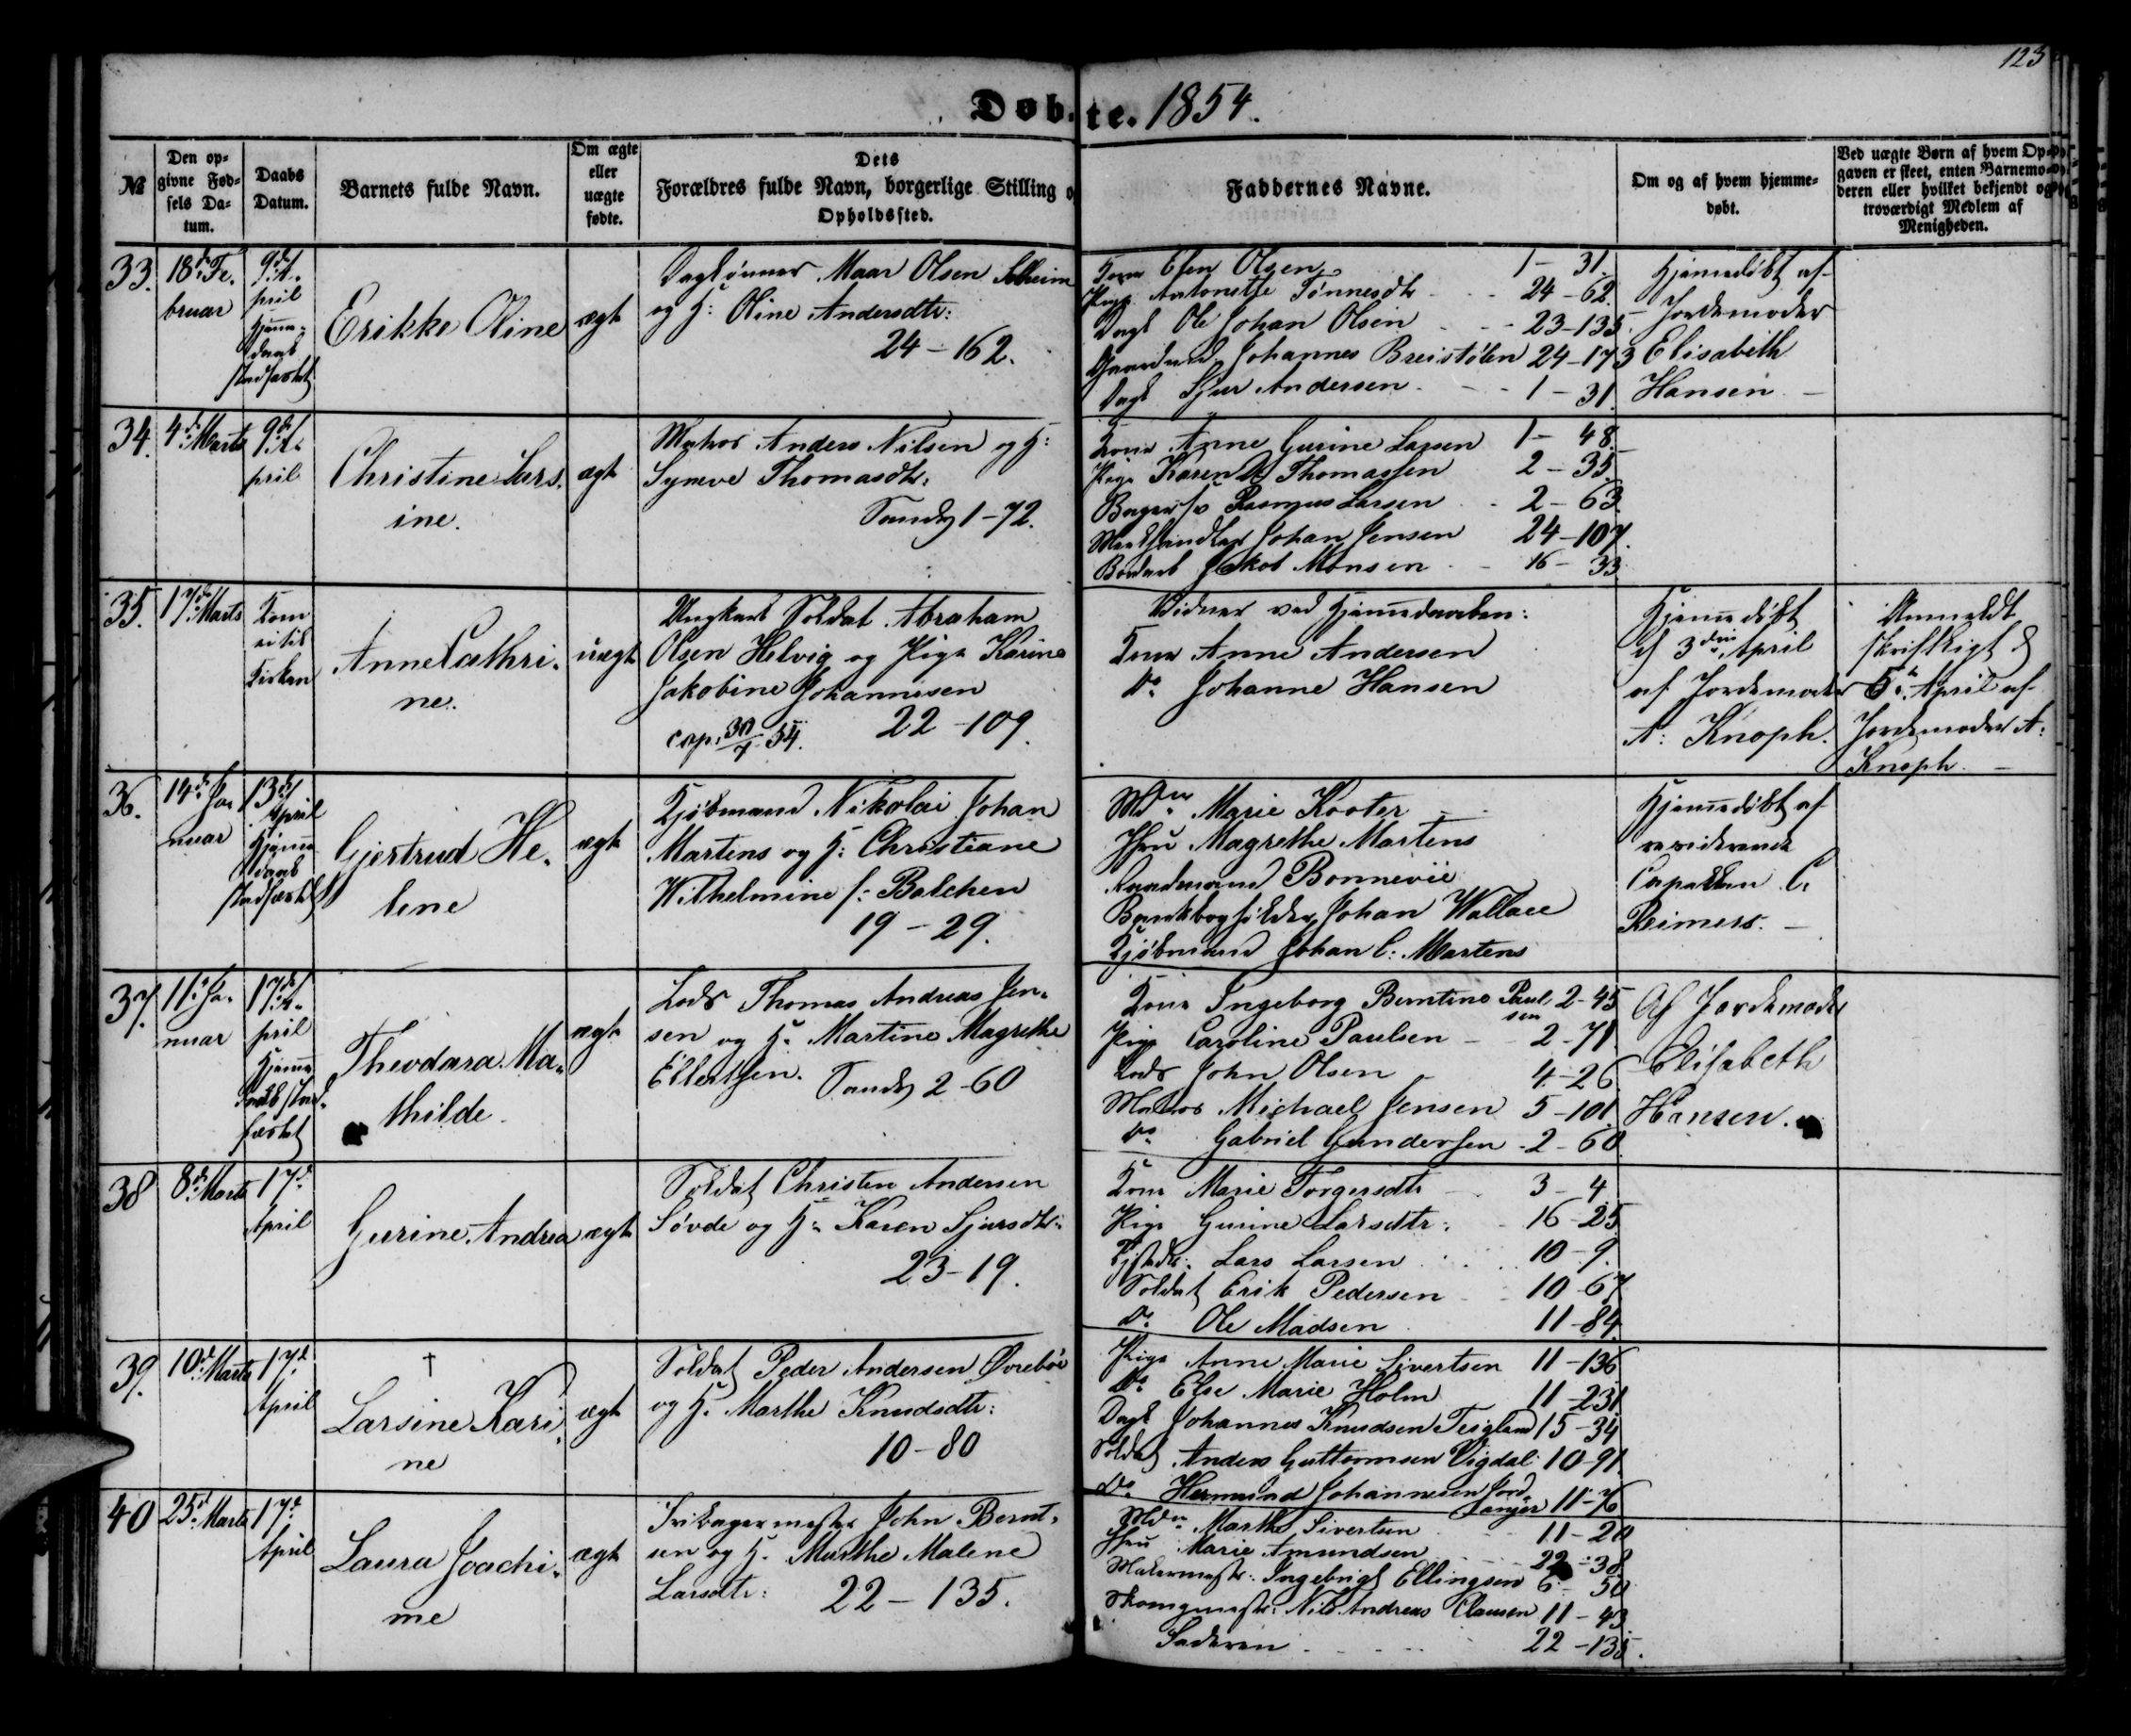 123
Døbte. 1854.
№
Den opgivne Fødsels Datum.
Daabs Datum.
Barnets fulde Navn.
Om ægte eller uægte fødte.
Dets Forældres fulde Navn, borgerlige Stilling o
Opholdssted.
Faddernes Navne.
Om og af hvem hjemmedøbt.
Ved uægte Børn af hvem Opgaven er skeet, enten Barnemoderen eller hvilket bekjendt og troværdigt Medlem af Menigheden.
33.
18de Februar
9de April
Hjemmedaab stadfæstet
Erikke Oline
ægte
Daglønner Maar Olsen Solheim
og H: Oline Andersdtr:
24-162.
Kone Elen Olsen 1-31.
Pige Antonette Tønnesdtr 24-62.
Dagl Ole Johan Olsen 23-135.
Gaardmd Johannes Breistølen 24-173
Dagl Sjur Andersen 1-31.
Hjemmedøbt af
Jordemoder
Elisabeth
Hansen
34.
4de Marts
9de April
Christine Larsine.
ægte
Matros Anders Nilsen og H:
Synneve Thomasdtr:
Sandv 1-72.
Kone Anne Gurine Larsen 1-48.
Pige Karen A Thomassen 2-35.
Bagersv Rasmus Larsen 2-63.
Johan Jensen 24-107.
Jakob Monsen 16-33
35.
17de Marts
Kom ei til Kirken
Anne Cathrine.
uægte
Ungkarl Soldat Abraham
Olsen Helvig og Pige Karine
Jakobine Johannesen
cop. 30/7 54. 22-109.
Vidner ved Hjemmedaaben:
Kone Anne Andersen
Do Johanne Hansen
Hjemmedøbt
d 3die April
af Jordemoder
A: Knoph.
Anmeldt
skriftligt d
5te April af
Jordemoder A:
Knoph.
36.
14de Januar
13de April
Hjemmedaab stadfæstet
Gjertrud Helene
ægte
Kjøbmand Nikolai Johan
Martens og H: Christiane
Wilhelmine f: Balchen
19-29.
Mdm Marie Kooter
Jfru Magrethe Martens
Bonnevie
Bankbogholder Johan Wallace
Kjøbmand Johan C: Martens
Hjemmedøbt af
residerende
Capellan C.
Reimers.
37.
11te Januar
17de April
Hjemmedaab stadfæstet
Theodara Mathilde
ægte
Lods Thomas Andreas Jensen og H. Martine Magrethe
Ellertsen. Sandv 2-60
Kone Ingeborg Berntine Paulsen 2-45
Pige Caroline Paulsen 2-71.
Lods John Olsen 4-26.
Matros Michael Jensen 5-101.
Do Gabriel Gundersen 2-60.
Af Jordemoder
Elisabeth
Hansen.
38
8de Marts
17de April
Gurine Andrea
ægte
Soldat Christen Andersen
Søvde og H: Karen Sjursdtr:
23-19.
Kone Marie Torgersdtr 3-4.
Pige Gurine Larsdtr: 16-25
Lars Larsen 10-9.
Soldat Erik Pedersen 10-67
Do Ole Madsen 11-84.
39.
10de Marts
17de April
†
Larsine Karine
ægte
Soldat Peder Andersen Øvrebøe
og H. Marthe Knudsdtr:
10-80
Pige Anne Marie Sivertsen 11-136
Do Else Marie Holm 11-231
Dagl Johannes Knudsen Teigland 15-34
Soldat Anders Guttormsen Vigdal 10-91
Do Hermund Johannesen 11-76
40
25de Marts
17de April
Laura Joachime
ægte
John Berntsen og H. Marthe Malene
Larsdtr: 22-135.
Mdm Marthe Sivertsen 11-20
Jfru Marie Amundsen 22-38.
Malermester: Ingebrigt Ellingsen 6-50
Skomgmestr: Nils Andreas Clausen 11-43
Faderen 22-135.